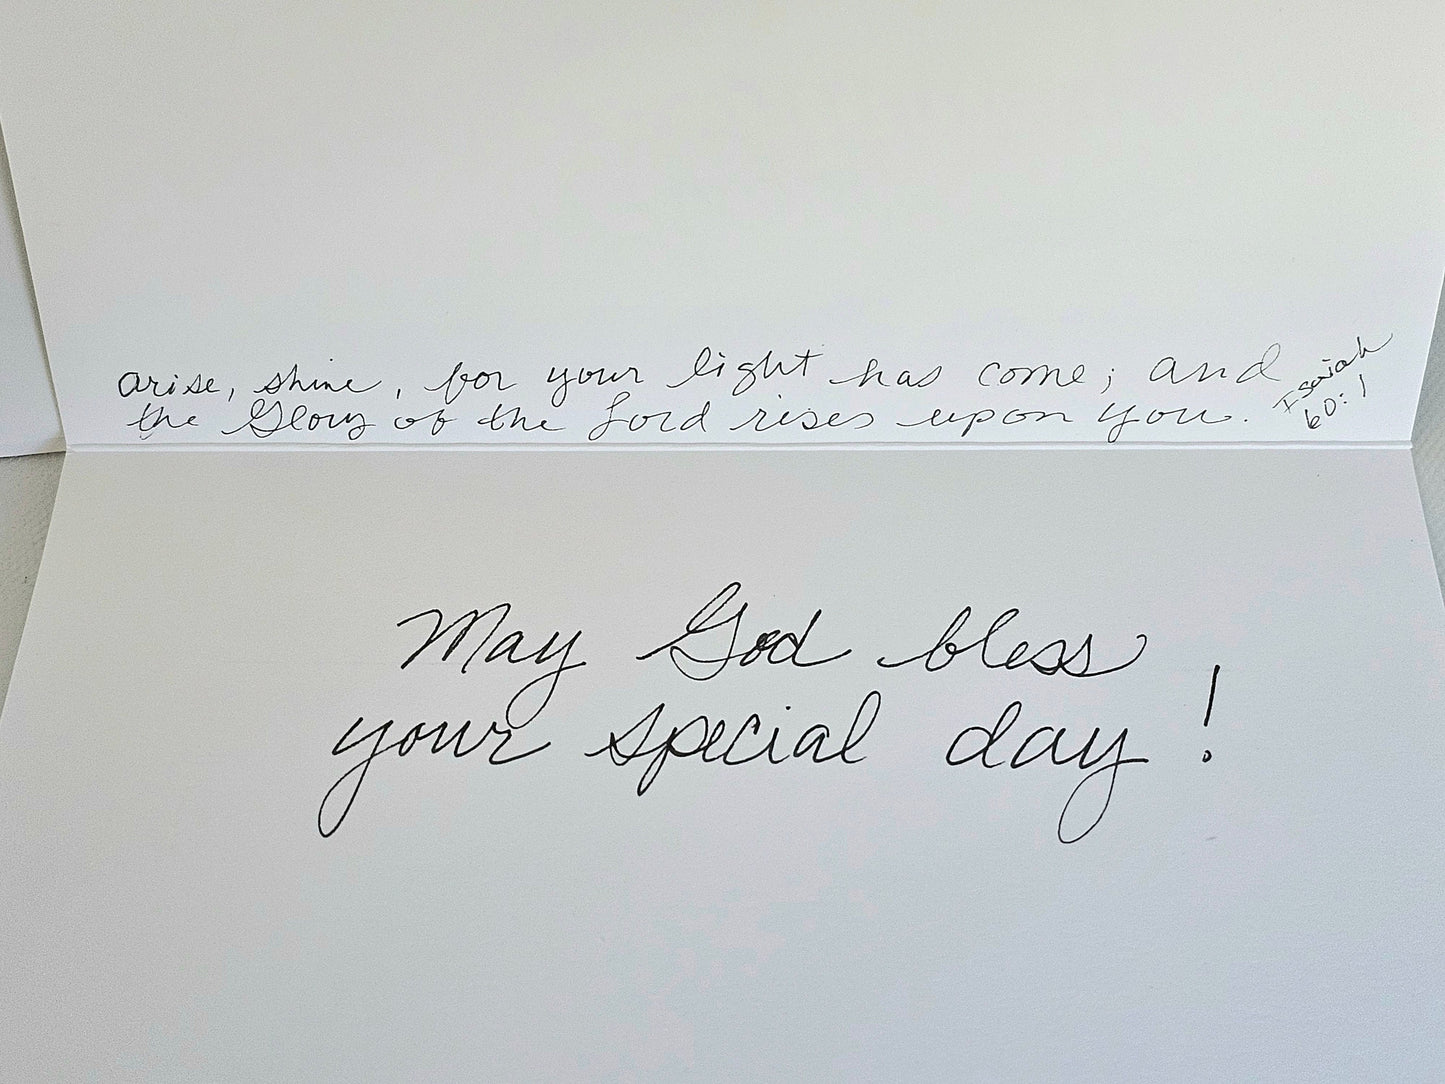 arise, shine, for your light has come; and
the Glory of the Lord rises upon you.
Isaiah
60:1
May God bless
your special day!